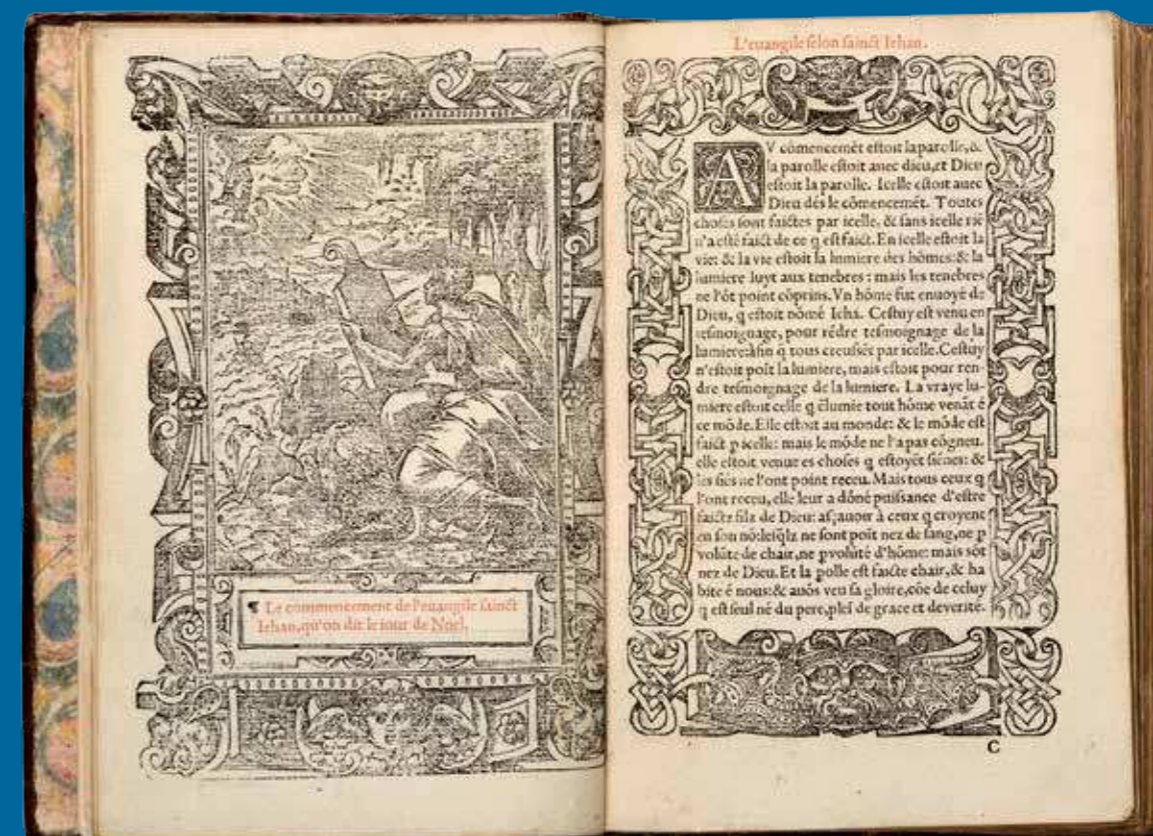 ¶ Le commencement de l'euangile sainct
Iehan, qu'on dit le iour de Noel.
L'euangile selon sainct Iehan.
AV cōmencemēt estoit la parolle, &
la parolle estoit auec dieu, et Dieu
estoit la parolle. Icelle estoit auec
Dieu dés le cōmencemēt. Toutes
choses sont faictes par icelle, & sans icelle riē
n'a esté faict de ce q est faict. En icelle estoit la
vie: & la vie estoit la lumiere des hōmes: & la
lumiere luyt aux tenebres : mais les tenebres
ne l'ōt point cōprins. Vn hōme fut enuoyé de
Dieu, q estoit nōmé Iehā. Cestuy est venu en
tesmoignage, pour rēdre tesmoignage de la
lumiere: àfin q tous creussēt par icelle. Cestuy
n'estoit poīt la lumiere, mais estoit pour ren-
dre tesmoignage de la lumiere. La vraye lu-
miere estoit celle q ēlumie tout hōme venāt ē
ce mōde. Elle estoit au monde: & le mōde est
faict p icelle: mais le mōde ne l'a pas cōgneu.
elle estoit venue es choses q estoyēt siēnes: &
les siēs ne l'ont point receu. Mais tous ceux q
l'ont receu, elle leur a dōné puissance d'estre
faictz filz de Dieu: asçauoir à ceux q croyent
en son nō: lesq̄lz ne sont poīt nez de sang, ne p
volūte de chair, ne p volūté d'hōme: mais sōt
nez de Dieu. Et la polle est faicte chair, & ha
bite ē nous: & auōs veu sa gloire, cōe de celuy
q est seul né du pere, pleī de grace et de verité.
C